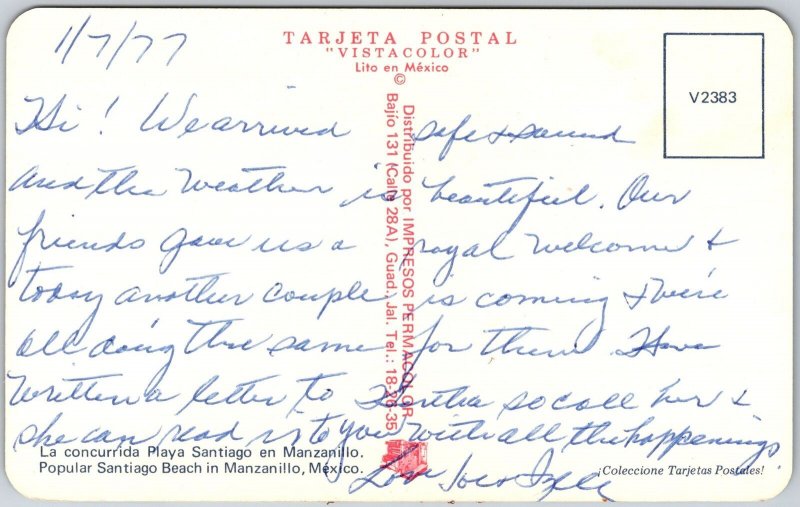 1/7/77
TARJETA POSTAL
"VISTACOLOR"
Lito en México
©
V2383
Distribuido por IMPRESOS PERMACOLOR
Bajío 131 (Calle 28A), Guad. Jal. Tel.: 18-26-35
Hi! We arrived safe & sound
and the weather is beautiful. Our
friends gave us a royal welcome &
today another couple is coming & we're
all doing the same for them. Have
written a letter to so call her &
she can read it to you with all the happenings
Love
La concurrida Playa Santiago en Manzanillo.
Popular Santiago Beach in Manzanillo, México.
¡Coleccione Tarjetas Postales!